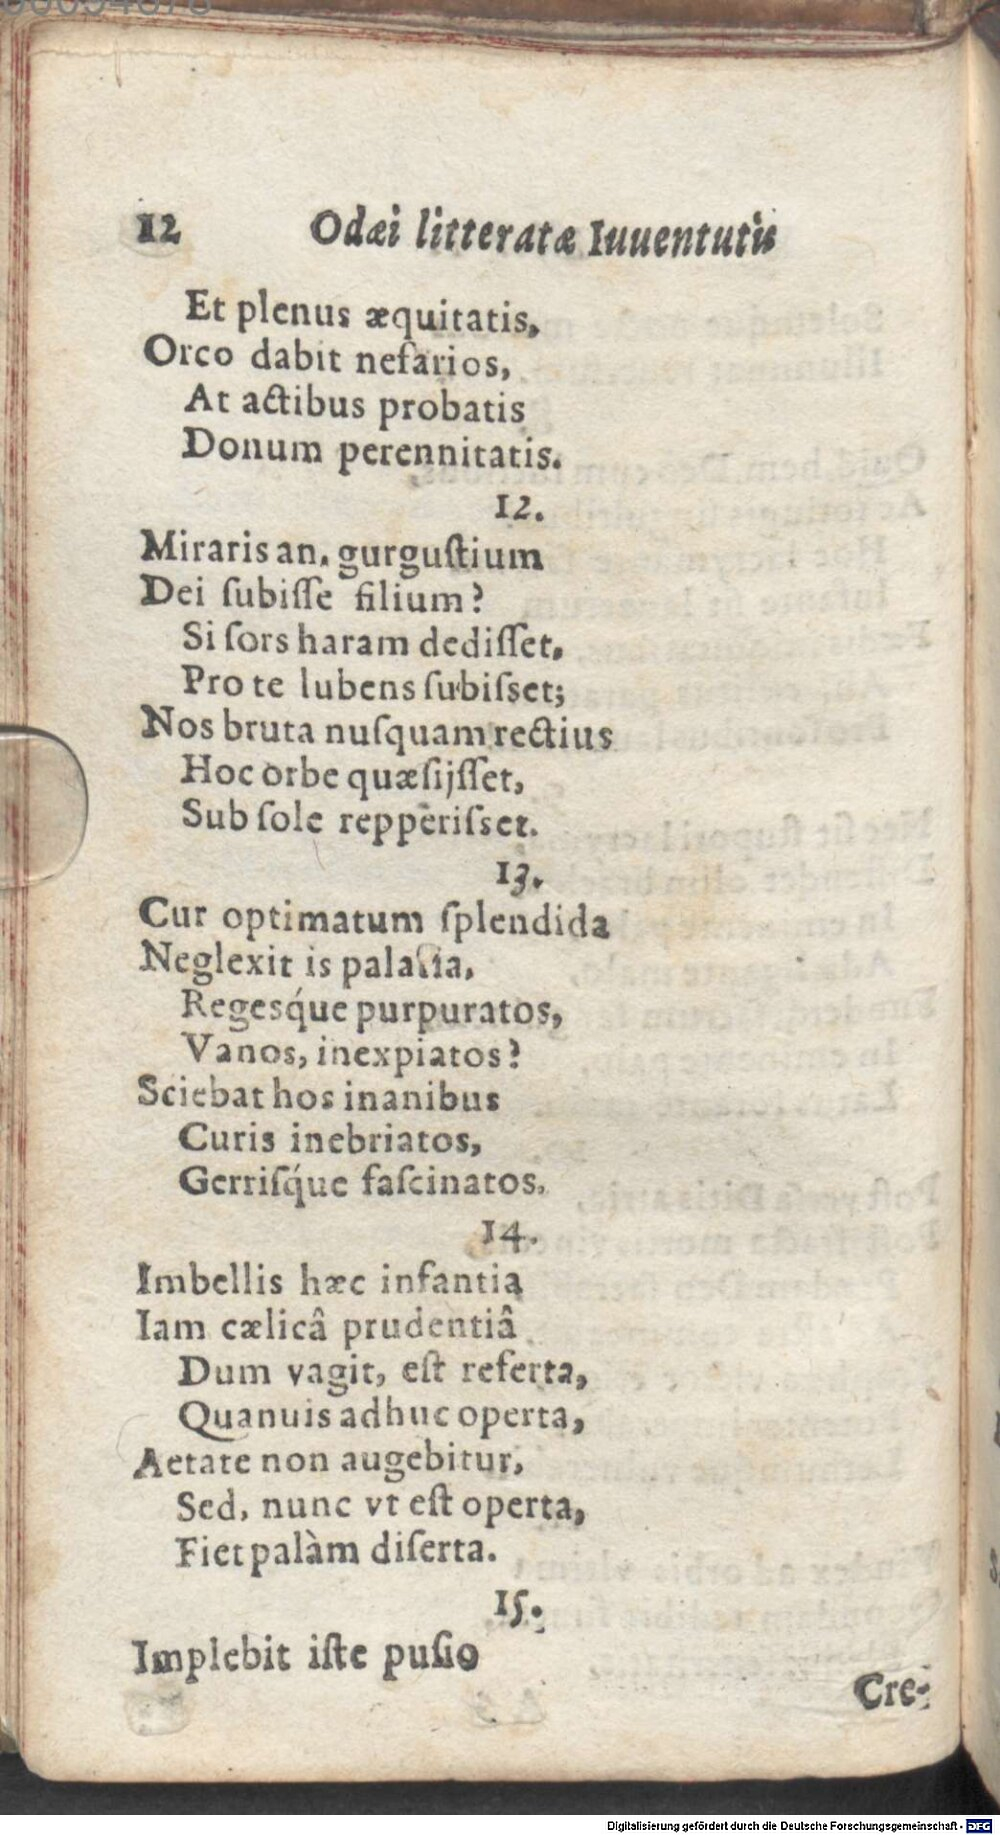 12 Odæi litteratæ Iuuentutis
Et plenus æquitatis,
Orco dabit nefarios,
At actibus probatis
Donum perennitatis.
12.
Miraris an, gurguſtium
Dei ſubiſſe filium?
Si ſors haram dediſſet,
Pro te lubens ſubiſset;
Nos bruta nuſquam rectius
Hoc orbe quæſijſſet,
Sub ſole repperiſset.
13.
Cur optimatum ſplendida
Neglexit is palatia,
Regesq́ue purpuratos,
Vanos, inexpiatos?
Sciebat hos inanibus
Curis inebriatos,
Gerriſq́ue faſcinatos.
14.
Imbellis hæc infantia
Iam cælicâ prudentiâ
Dum vagit, eſt referta,
Quanuis adhuc operta,
Aetate non augebitur,
Sed, nunc vt eſt operta,
Fiet palàm diſerta.
15.
Implebit iſte puſio
Cre-
Digitalisierung gefördert durch die Deutsche Forschungsgemeinschaft - DFG